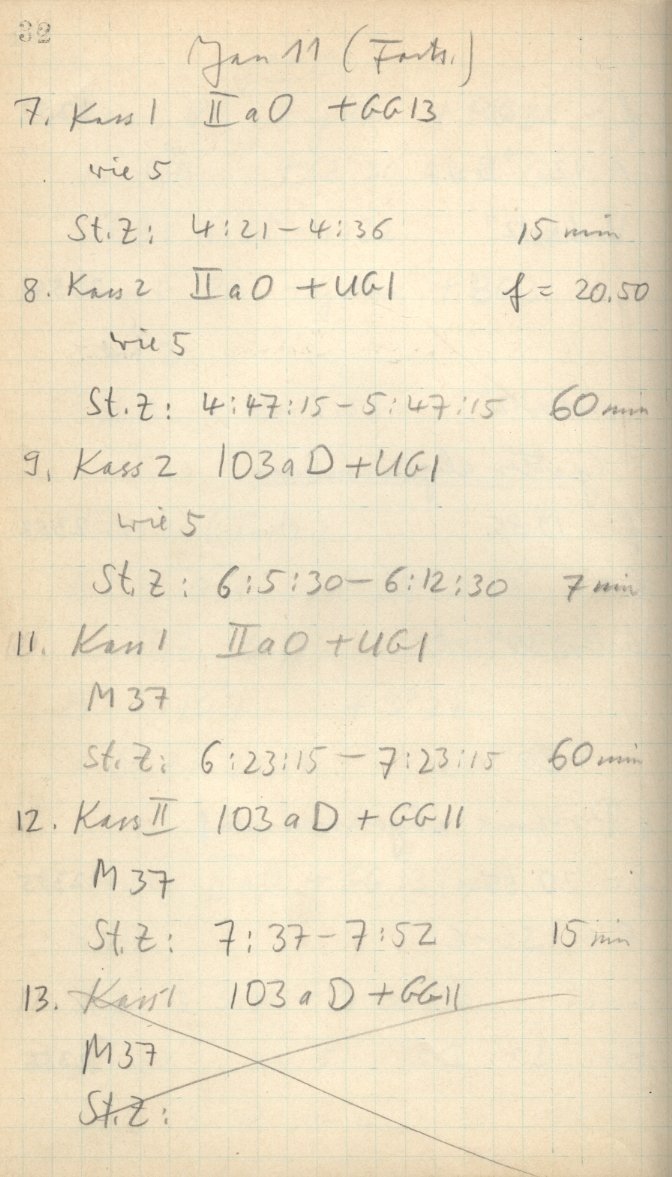 32
Jan 11 (Forts.)
7. Kass 1 II a O + GG13
wie 5
St.Z: 4:21 - 4:36 15 min
8. Kass 2 II a O + UG1 f = 20.50
wie 5
St.Z: 4:47:15 - 5:47:15 60 min
9. Kass 2 103 a D + UG1
wie 5
St.Z: 6:5:30 - 6:12:30 7 min
11. Kass 1 II a O + UG1
M 37
St.Z: 6:23:15 - 7:23:15 60 min
12. Kass II 103 a D + GG11
M 37
St.Z: 7:37 - 7:52 15 min
13. Kass 1 103 a D + GG11
M37
St.Z: